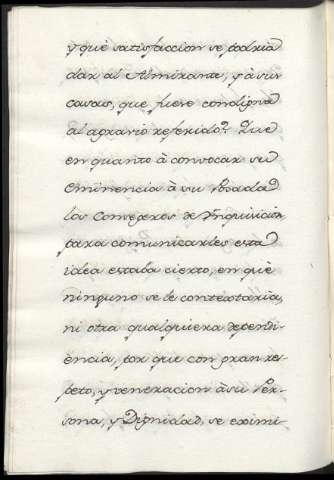 y què satisfaccion se podria
dar al Almirante, y à sus
causas, que fuese condigna
al agravio referido? Que
en quanto à convocar su
Eminencia à su Posada
los Consegeros de Inquisicion,
para comunicarles esta
idea estaba cierto, en què
ninguno se le contextaria,
ni otra qualquiera dependi-
ència, por que con gran res-
peto, y veneracion à su Per-
sona, y Dignidad, se eximi-